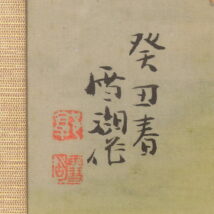 癸丑春
雪湖作